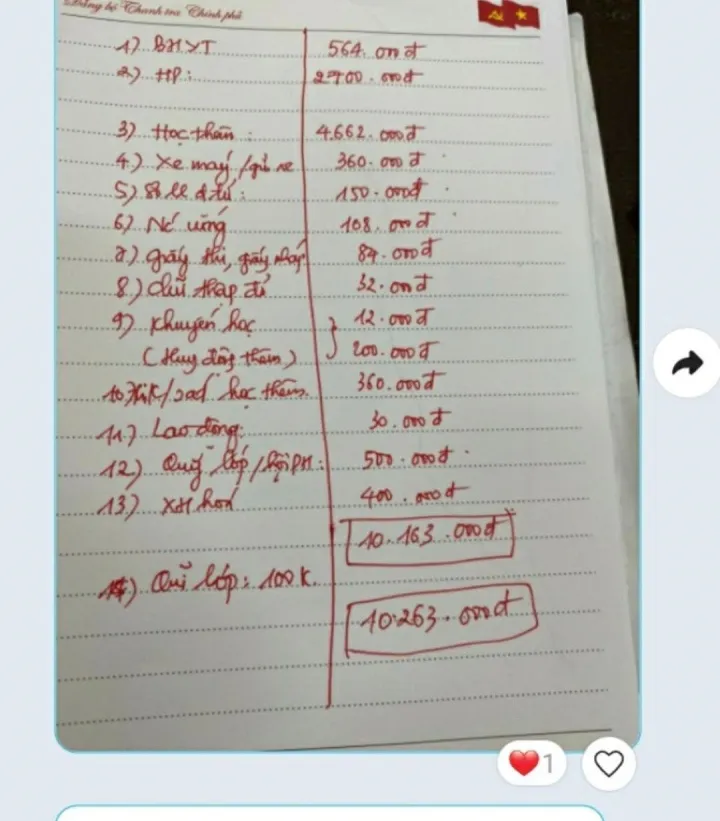 Đảng bộ Thanh tra Chính phủ
1) BHYT 564.000đ
2) HP: 2700.000đ
3) Học thêm: 4.662.000đ
4) Xe máy/gửi xe 360.000đ
5) Sổ LL đ.tử: 150.000đ
6) Nước uống 108.000đ
7) giấy thi, giấy nháp 84.000đ
8) chữ thập đỏ 32.000đ
9) Khuyến học 12.000đ
(Huy động thêm) 200.000đ
10) học thêm. 360.000đ
11) Lao động: 30.000đ
12) Quỹ lớp/hội PH: 500.000đ
13) XH hoá 400.000đ
10.163.000đ
14) Quĩ lớp: 100K.
10.263.000đ
1